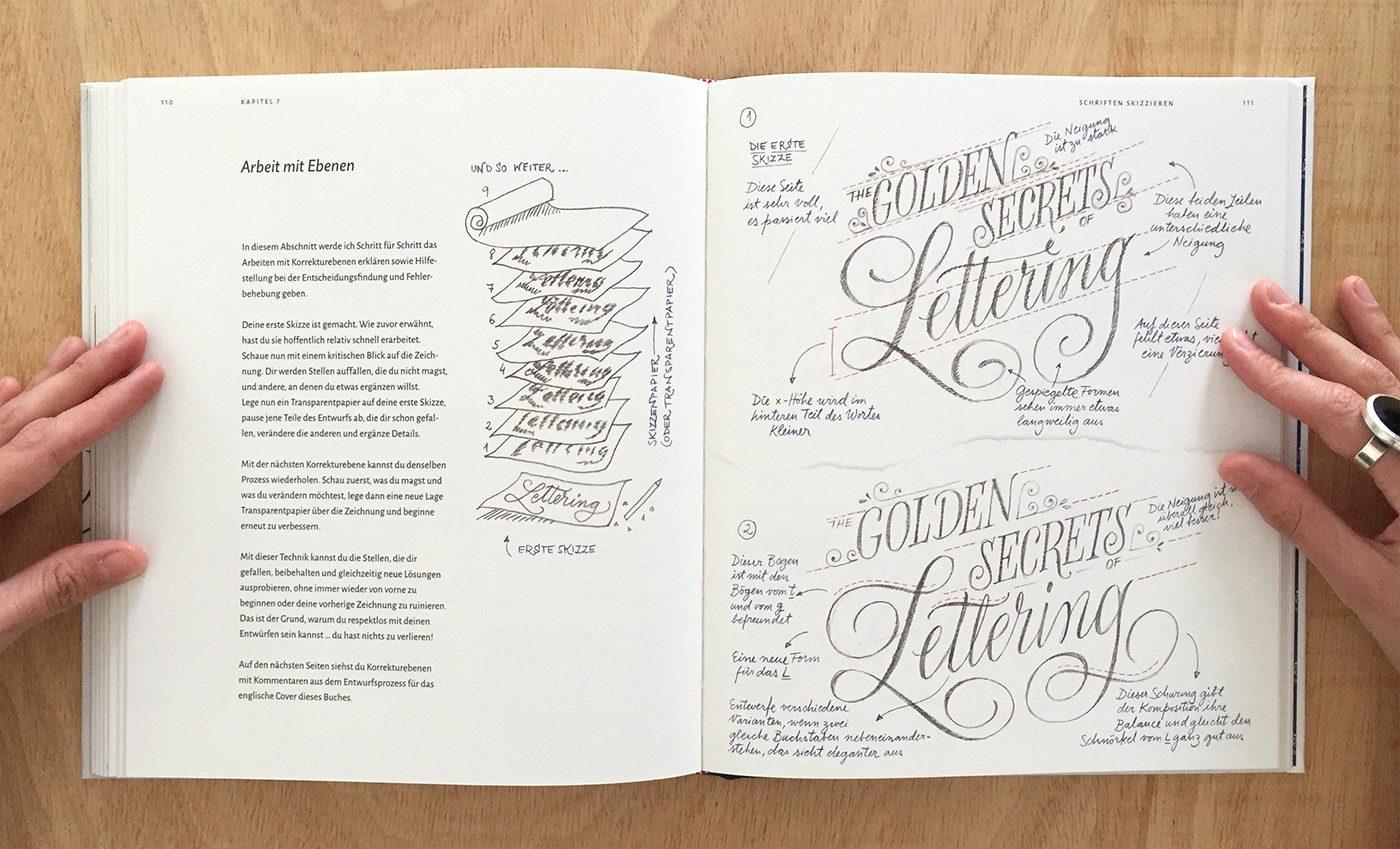 110
KAPITEL 7
Arbeit mit Ebenen
In diesem Abschnitt werde ich Schritt für Schritt das
Arbeiten mit Korrekturebenen erklären sowie Hilfe-
stellung bei der Entscheidungsfindung und Fehler-
behebung geben.
Deine erste Skizze ist gemacht. Wie zuvor erwähnt,
hast du sie hoffentlich relativ schnell erarbeitet.
Schaue nun mit einem kritischen Blick auf die Zeich-
nung. Dir werden Stellen auffallen, die du nicht magst,
und andere, an denen du etwas ergänzen willst.
Lege nun ein Transparentpapier auf deine erste Skizze,
pause jene Teile des Entwurfs ab, die dir schon gefal-
len, verändere die anderen und ergänze Details.
Mit der nächsten Korrekturebene kannst du denselben
Prozess wiederholen. Schau zuerst, was du magst und
was du verändern möchtest, lege dann eine neue Lage
Transparentpapier über die Zeichnung und beginne
erneut zu verbessern.
Mit dieser Technik kannst du die Stellen, die dir
gefallen, beibehalten und gleichzeitig neue Lösungen
ausprobieren, ohne immer wieder von vorne zu
beginnen oder deine vorherige Zeichnung zu ruinieren.
Das ist der Grund, warum du respektlos mit deinen
Entwürfen sein kannst ... du hast nichts zu verlieren!
Auf den nächsten Seiten siehst du Korrekturebenen
mit Kommentaren aus dem Entwurfsprozess für das
englische Cover dieses Buches.
UND SO WEITER ...
9
8
7
6
5
4
3
2
1
Lettering
SKIZZENPAPIER
(ODER TRANSPARENTPAPIER)
ERSTE SKIZZE
SCHRIFTEN SKIZZIEREN
111
1
DIE ERSTE
SKIZZE
Diese Seite
ist sehr voll,
es passiert viel
Die Neigung
ist zu stark
THE GOLDEN
SECRETS
OF
Lettering
Diese beiden Zeilen
haben eine
unterschiedliche
Neigung
Auf dieser Seite
fehlt etwas,
eine Verzierung
Die x-Höhe wird im
hinteren Teil des Wortes
Kleiner
Gespiegelte Formen
sehen immer etwas
langweilig aus
2
THE GOLDEN
SECRETS
OF
Lettering
Die Neigung ist
überall gleich,
viel besser!
Dieser Bogen
ist mit den
Bögen vom t
und vom g
befreundet
Eine neue Form
für das L
Entwerfe verschiedene
Varianten, wenn zwei
gleiche Buchstaben nebeneinander-
stehen, das sieht eleganter aus
Dieser Schwung gibt
der Komposition ihre
Balance und gleicht den
Schnörkel vom L ganz gut aus